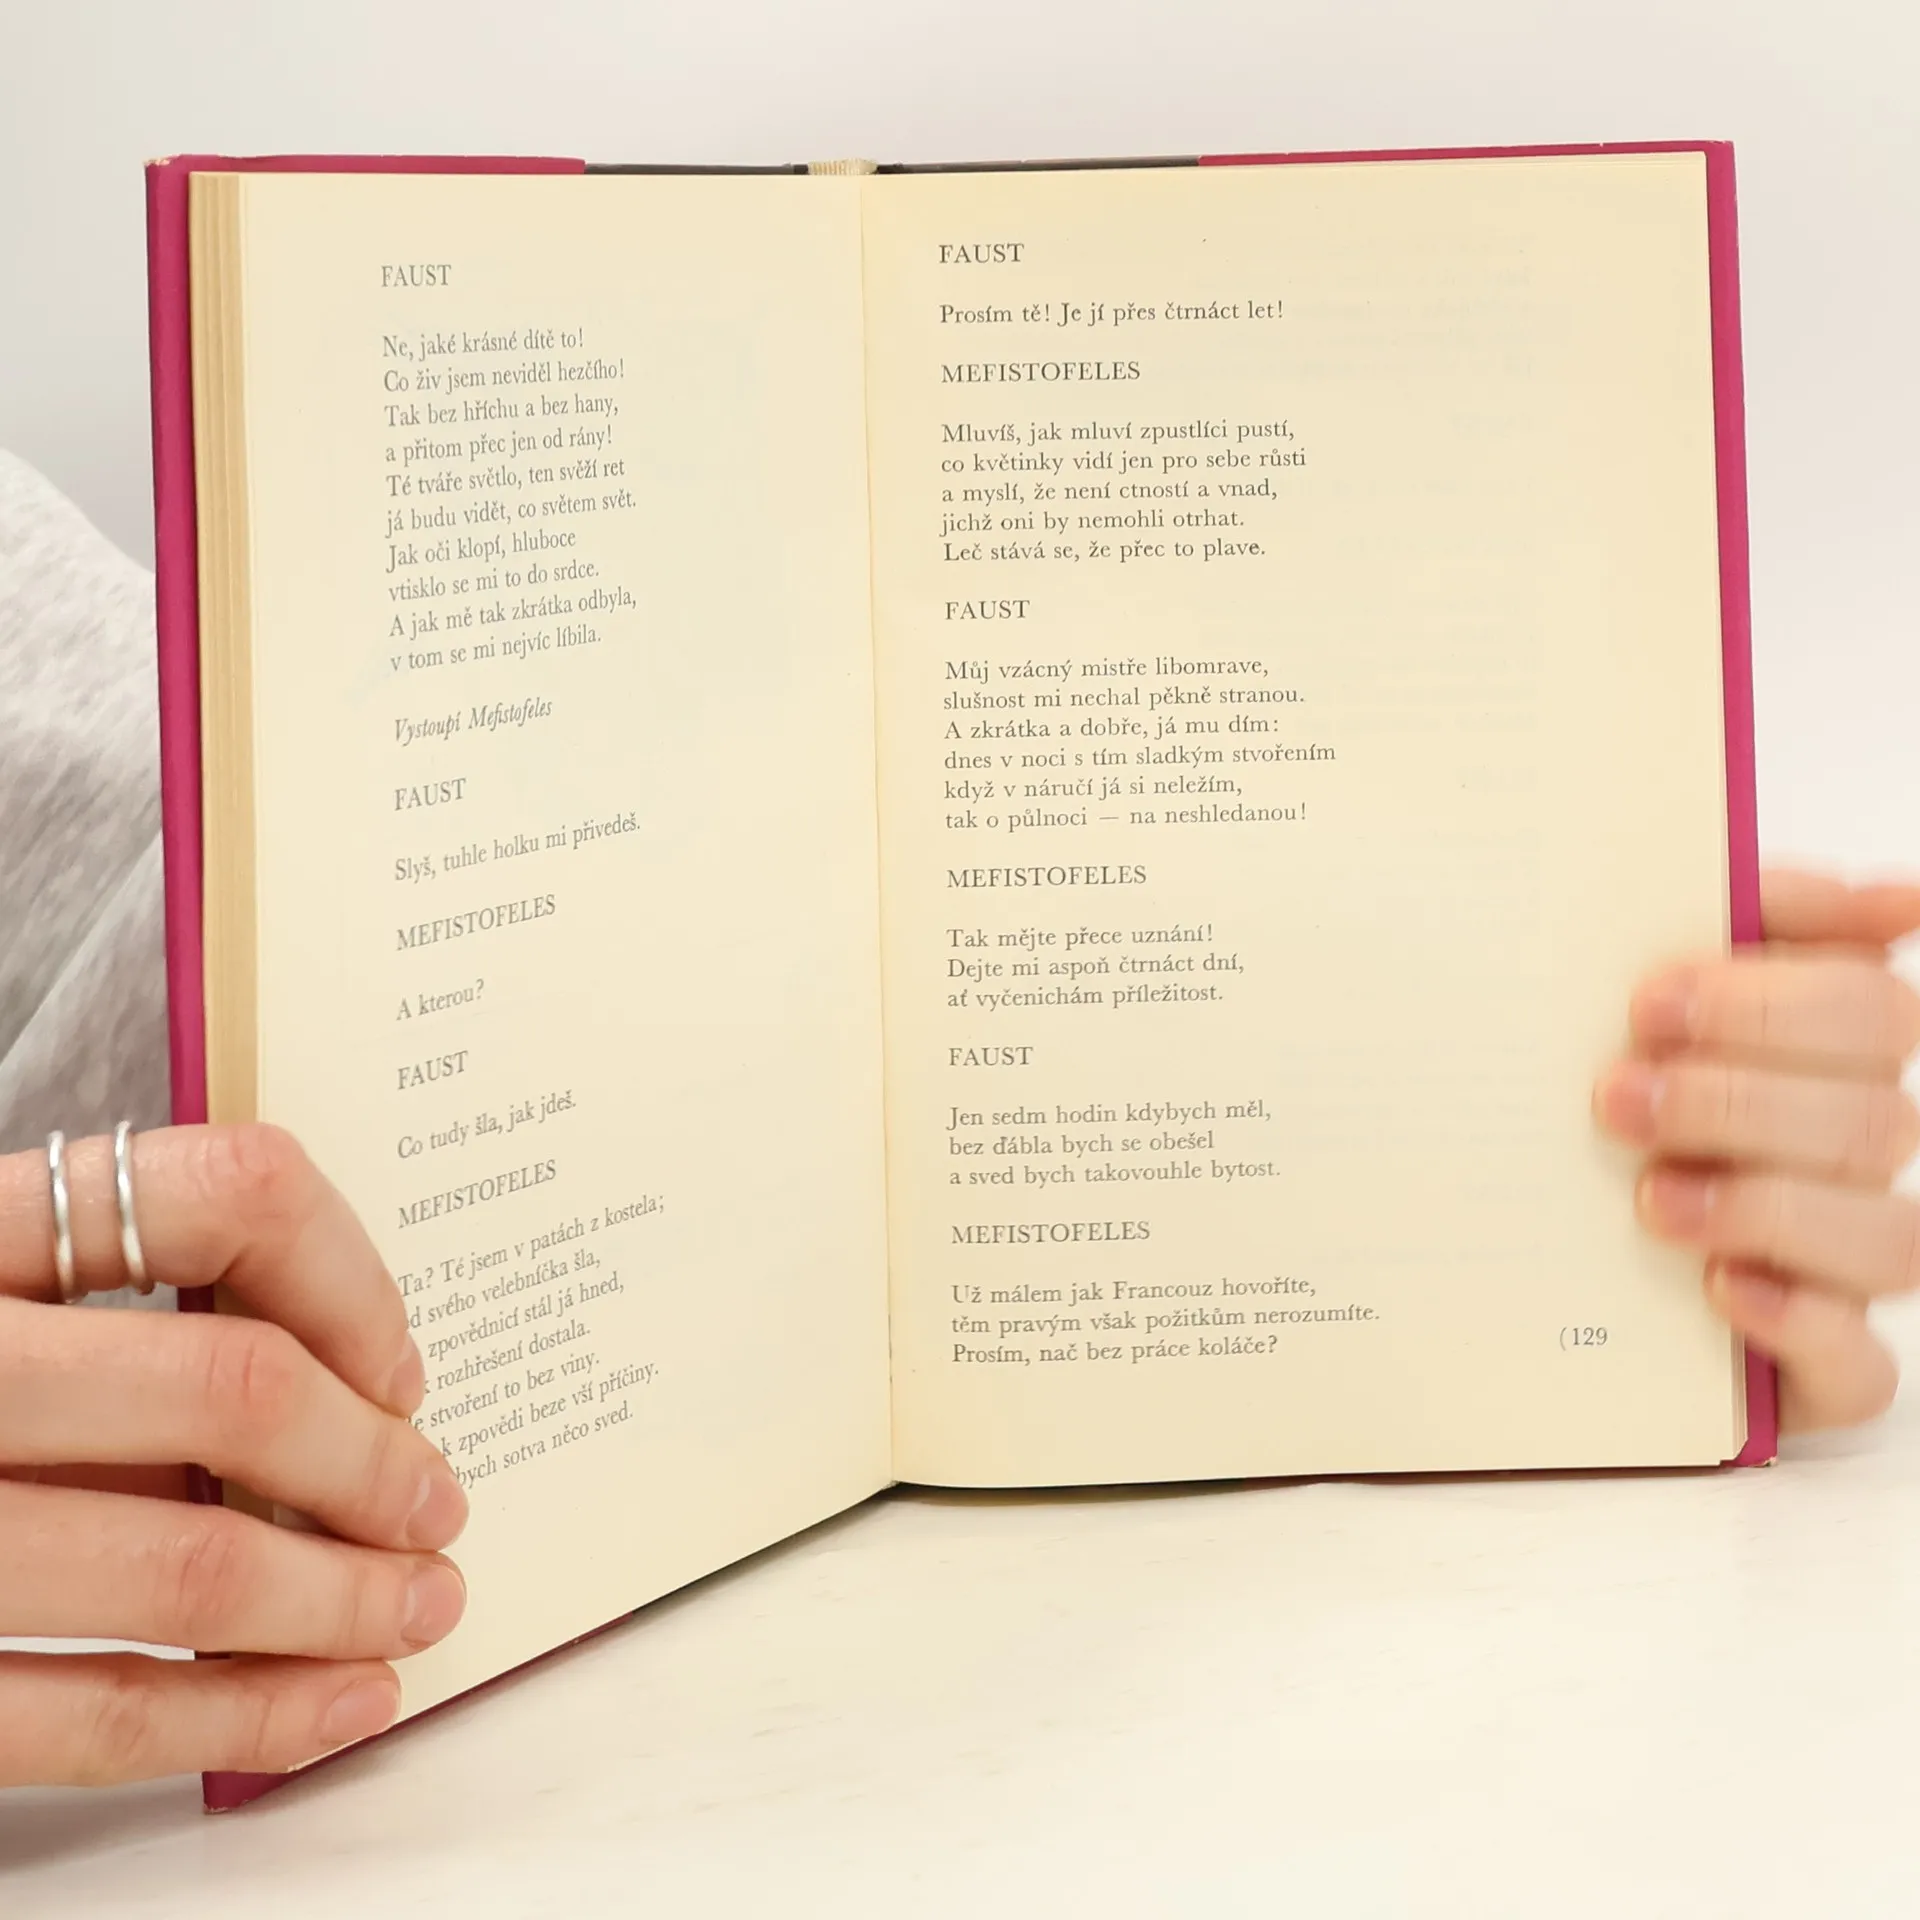 FAUST
Ne, jaké krásné dítě to!
Co živ jsem neviděl hezčího!
Tak bez hříchu a bez hany,
a přitom přec jen od rány!
Té tváře světlo, ten svěží ret
já budu vidět, co světem svět.
Jak oči klopí, hluboce
vtisklo se mi to do srdce.
A jak mě tak zkrátka odbyla,
v tom se mi nejvíc líbila.
Vystoupí Mefistofeles
FAUST
Slyš, tuhle holku mi přivedeš.
MEFISTOFELES
A kterou?
FAUST
Co tudy šla, jak jdeš.
MEFISTOFELES
Ta? Té jsem v patách z kostela;
svého velebníčka šla,
zpovědnicí stál já hned,
rozhřešení dostala.
stvoření to bez viny.
k zpovědi beze vší příčiny.
bych sotva něco sved.
FAUST
Prosím tě! Je jí přes čtrnáct let!
MEFISTOFELES
Mluvíš, jak mluví zpustlíci pustí,
co květinky vidí jen pro sebe růsti
a myslí, že není ctností a vnad,
jichž oni by nemohli otrhat.
Leč stává se, že přec to plave.
FAUST
Můj vzácný mistře libomrave,
slušnost mi nechal pěkně stranou.
A zkrátka a dobře, já mu dím:
dnes v noci s tím sladkým stvořením
když v náručí já si neležím,
tak o půlnoci — na neshledanou!
MEFISTOFELES
Tak mějte přece uznání!
Dejte mi aspoň čtrnáct dní,
ať vyčenichám příležitost.
FAUST
Jen sedm hodin kdybych měl,
bez ďábla bych se obešel
a sved bych takovouhle bytost.
MEFISTOFELES
Už málem jak Francouz hovoříte,
těm pravým však požitkům nerozumíte.
Prosím, nač bez práce koláče?
(129